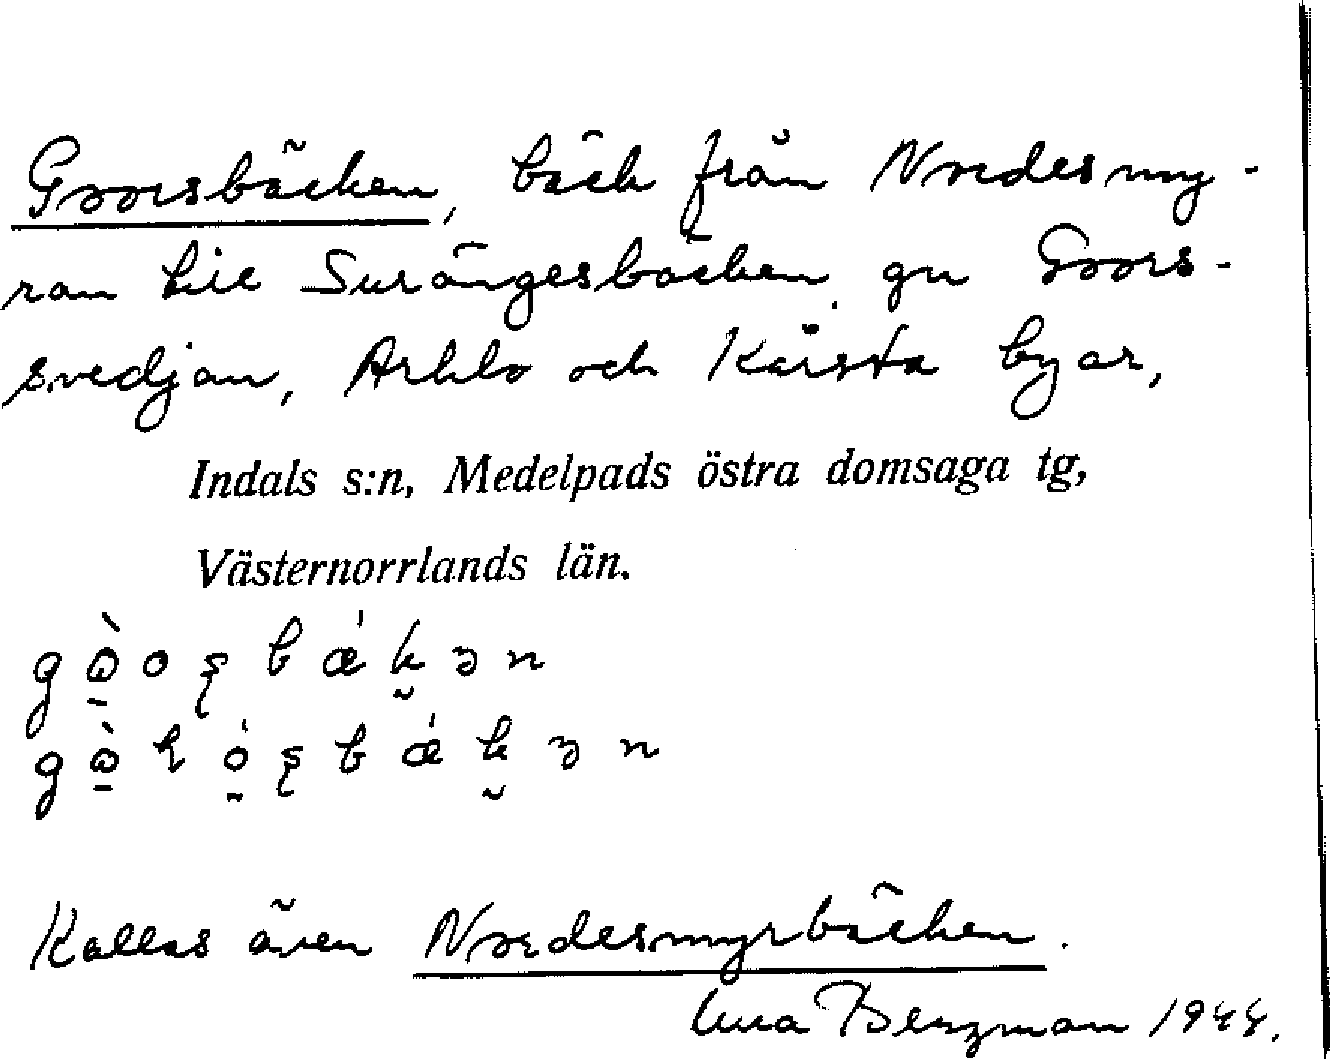 Goorsbäcken, bäck från Nordesmy-
ran till Surängesbäcken, gm Goors-
svedjan, Arklo och Kärsta byar,
Indals s:n, Medelpads östra domsaga tg,
Västernorrlands län.
Kallas även Nordesmyrbäcken.
Bergman 1944.